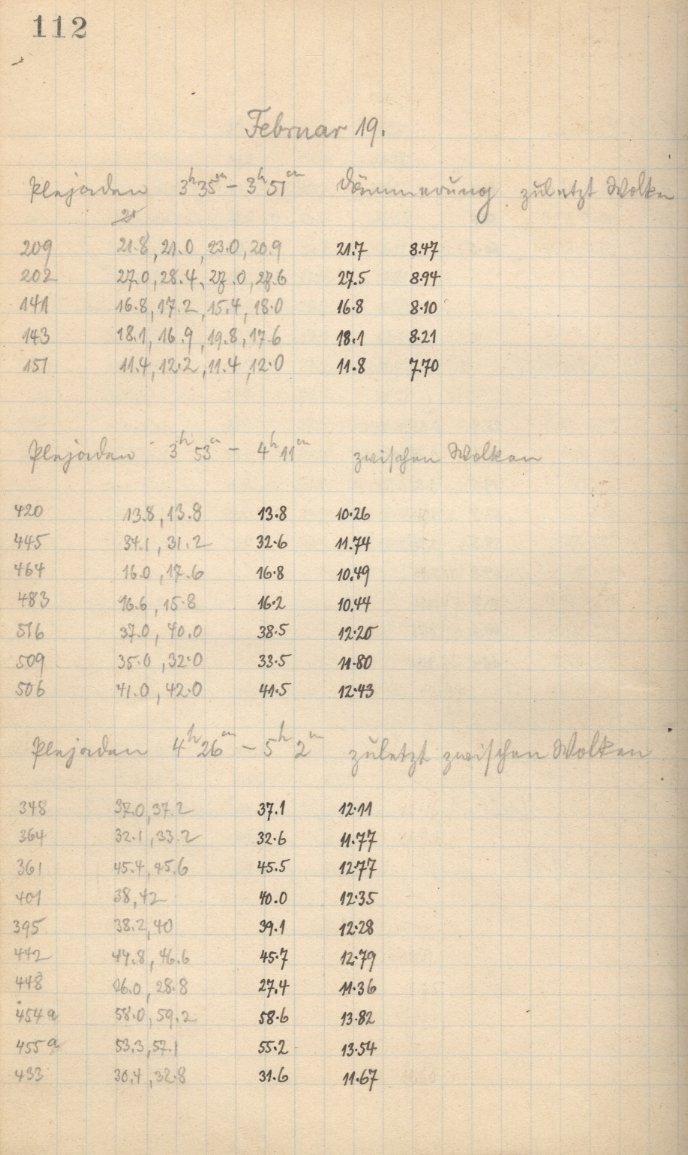 112
Februar 19.
Plejaden 3h 35m – 3h 51m Dämmerung zuletzt Wolken
209 21.8, 21.0, 23.0, 20.9 21.7 8.47
202 27.0, 28.4, 27.0, 27.6 27.5 8.94
141 16.8, 17.2, 15.4, 18.0 16.8 8.10
143 18.1, 16.9, 19.8, 17.6 18.1 8.21
151 11.4, 12.2, 11.4, 12.0 11.8 7.70
Plejaden 3h 53m – 4h 11m zwischen Wolken
420 13.8, 13.8 13.8 10.26
445 34.1, 31.2 32.6 11.74
464 16.0, 17.6 16.8 10.49
483 16.6, 15.8 16.2 10.44
516 37.0, 40.0 38.5 12.20
509 35.0, 32.0 33.5 11.80
506 41.0, 42.0 41.5 12.43
Plejaden 4h 26m – 5h 2m zuletzt zwischen Wolken
348 37.0, 37.2 37.1 12.11
364 32.1, 33.2 32.6 11.77
361 45.4, 45.6 45.5 12.77
401 38, 42 40.0 12.35
395 38.2, 40 39.1 12.28
442 44.8, 46.6 45.7 12.79
448 26.0, 28.8 27.4 11.36
454a 58.0, 59.2 58.6 13.82
455a 53.3, 57.1 55.2 13.54
433 30.4, 32.8 31.6 11.67